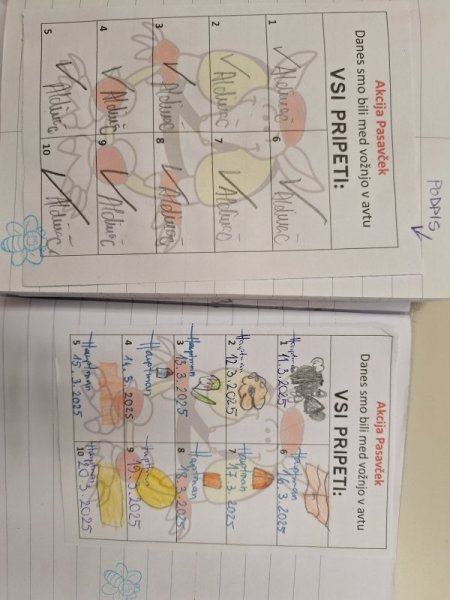 PODPIS
Akcija Pasavček
Danes smo bili med vožnjo v avtu
VSI PRIPETI:
1
6
2
Aldivač
7
Aldivač
3
Aldivač
8
Aldivač
4
Aldivač
9
Aldivač
5
Aldivač
10
Aldivač
Akcija Pasavček
Danes smo bili med vožnjo v avtu
VSI PRIPETI:
1
Hauptman
11.3.2025
6
Hauptman
16.3.2025
2
Hauptman
12.3.2025
7
Hauptman
17.3.2025
3
Hauptman
13.3.2025
8
Hauptman
18.3.2025
4
Hauptman
14.3.2025
9
Hauptman
19.3.2025
5
Hauptman
15.3.2025
10
Hauptman
20.3.2025